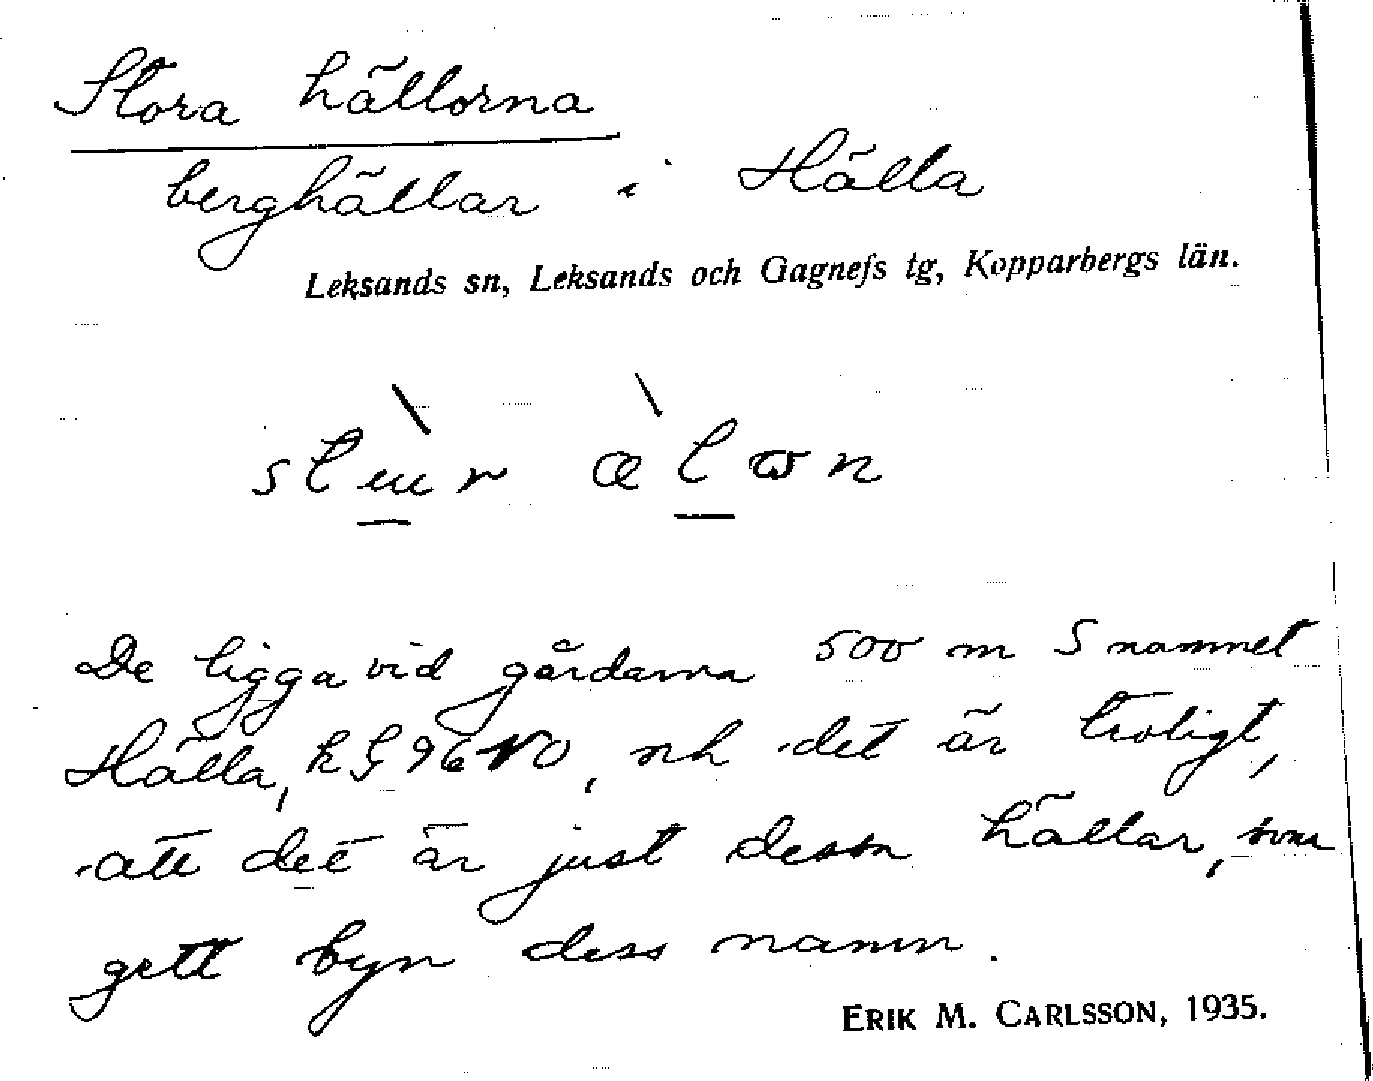 Stora hällorna
berghällar i Hälla
Leksands sn, Leksands och Gagnefs tg, Kopparbergs län.
De ligga vid gårdarna 500 m S namnet
Hälla, det är troligt,
att det är just dessa hällar, som
gett byn dess namn.
ERIK M. CARLSSON, 1935.